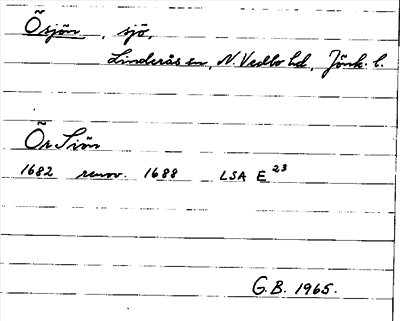 Õsjön, sjö,
Linderås sn, N. Vedbo hd, Jönk. l.
Õr Siön
1682 renov. 1688 LSA E 23
G.B. 1965.